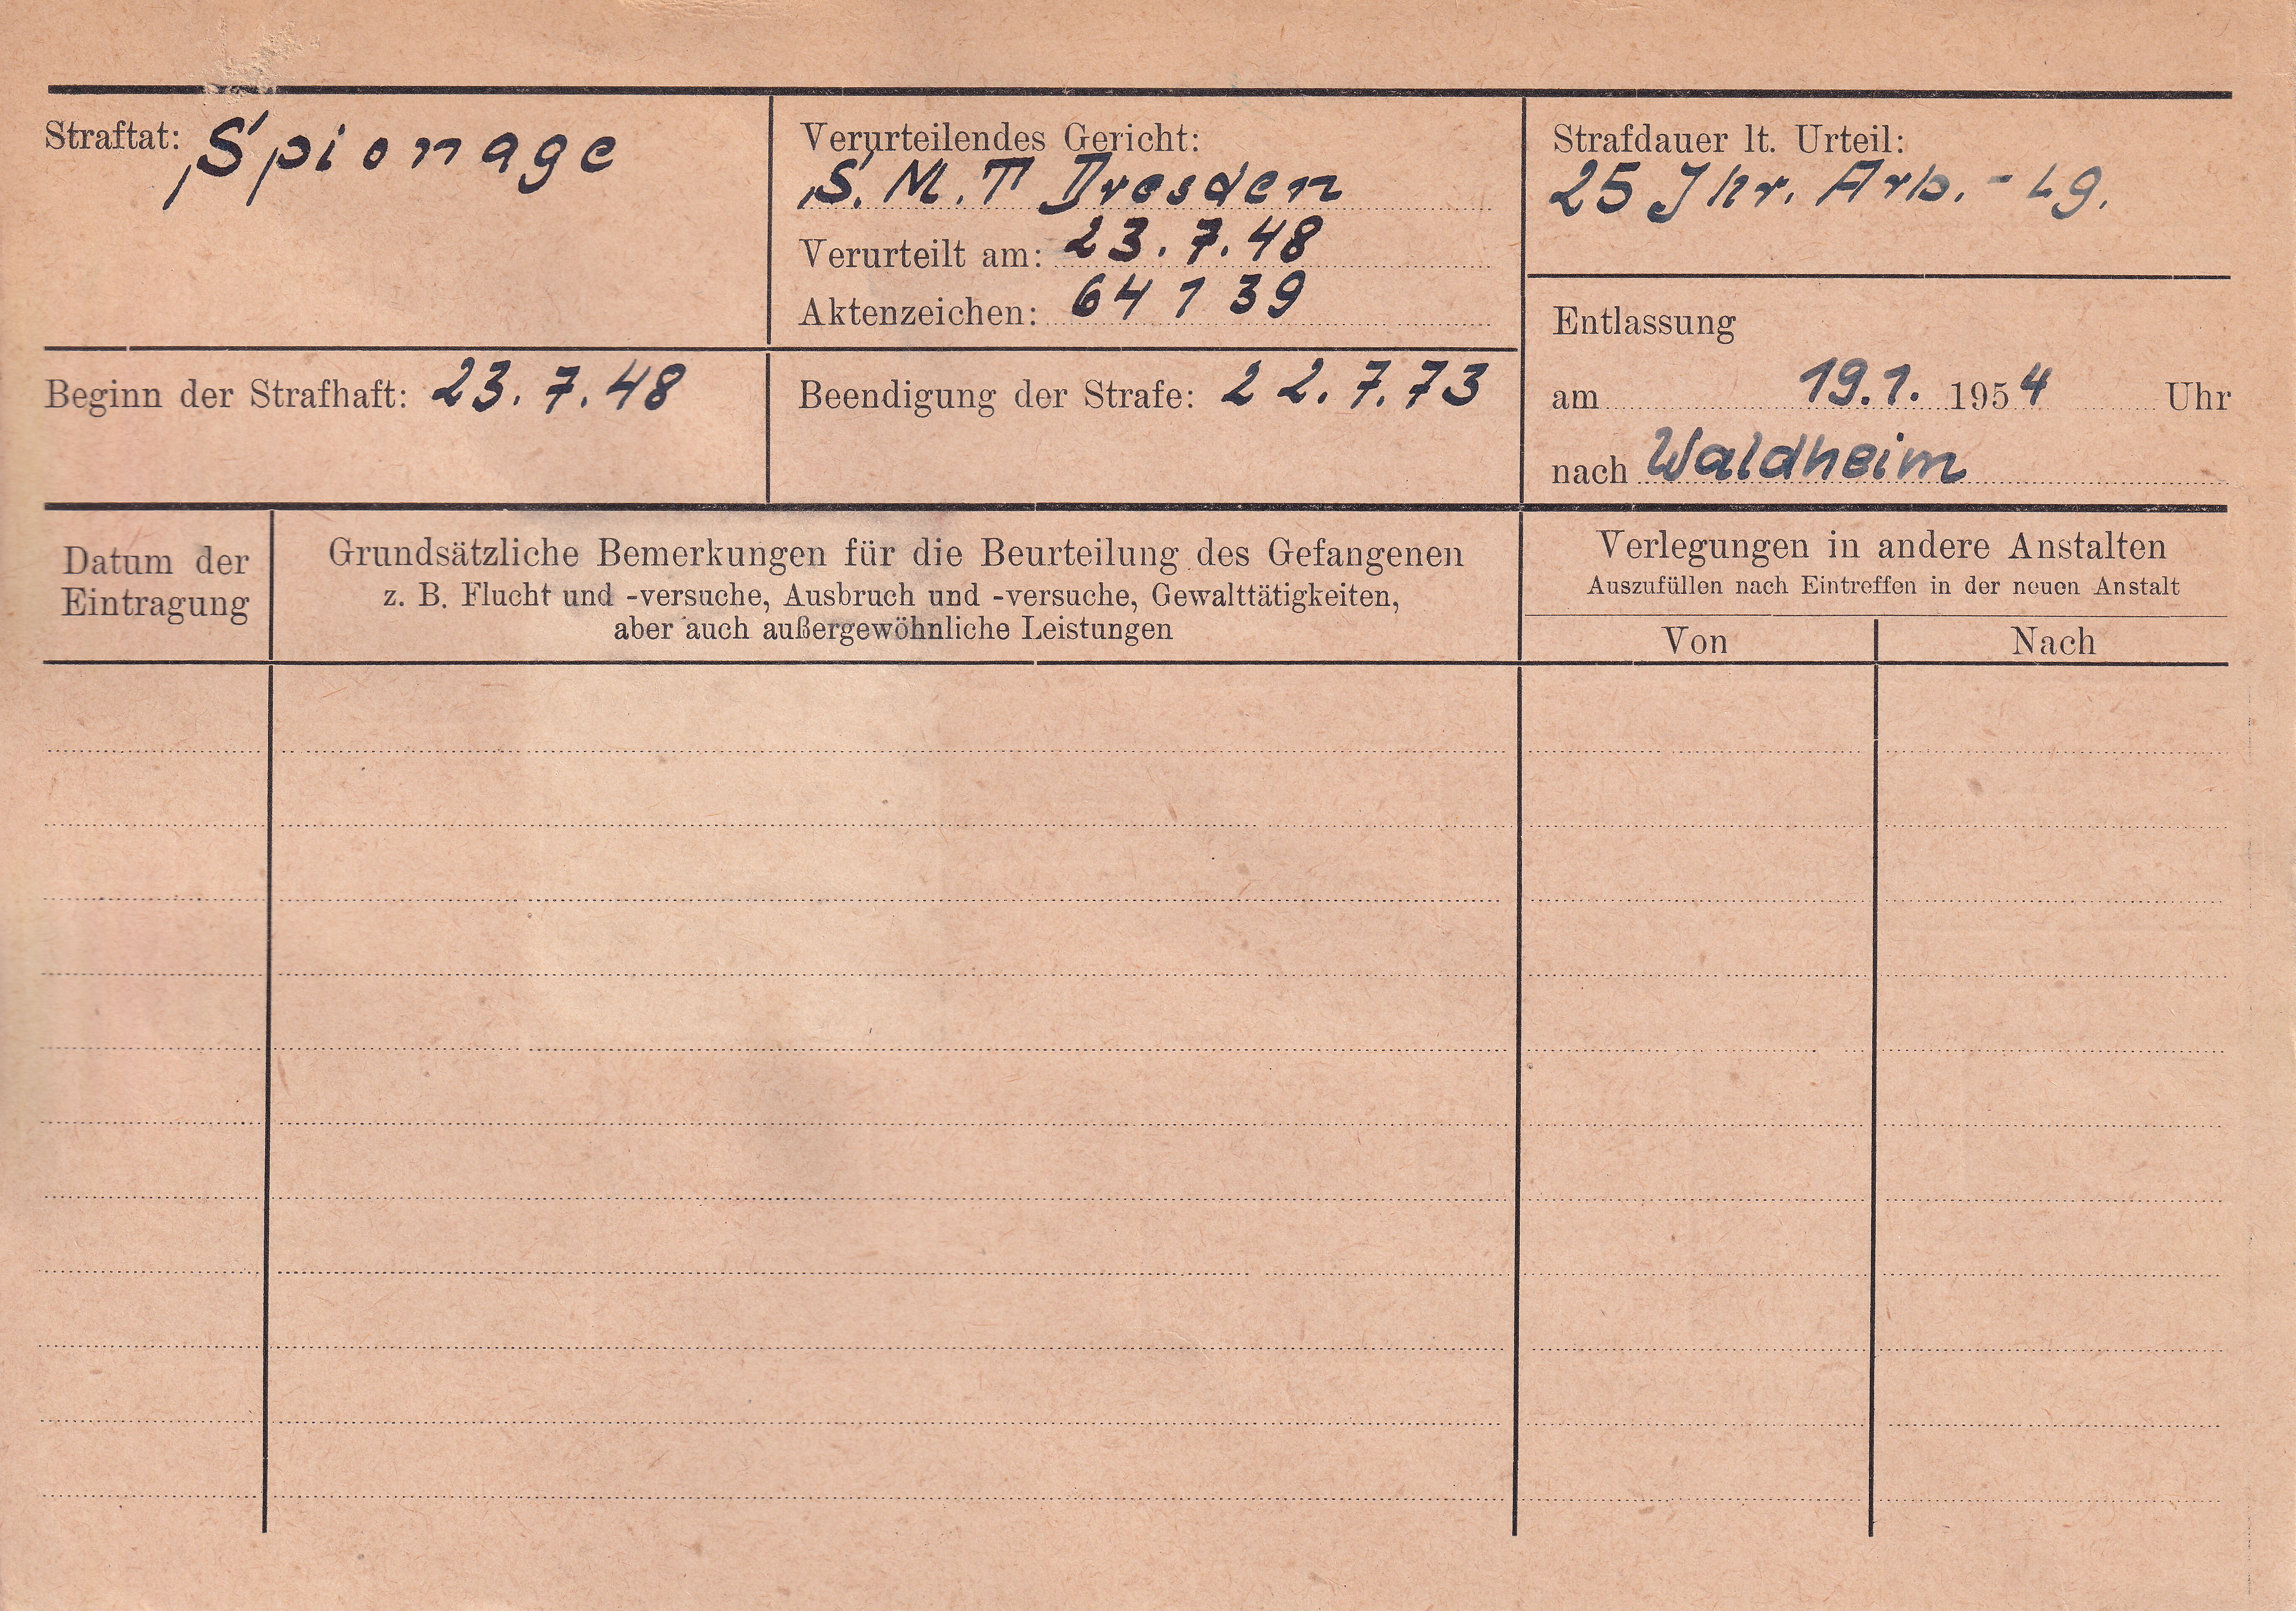 Straftat: Spionage
Verurteilendes Gericht:
S.M.T Dresden
Verurteilt am: 23.7.48
Aktenzeichen: 64 1 39
Strafdauer lt. Urteil:
25 Jhr. Arb.-Lg.
Beginn der Strafhaft: 23.7.48
Beendigung der Strafe: 22.7.73
Entlassung
am 19.1. 1954 Uhr
nach Waldheim
Datum der
Eintragung
Grundsätzliche Bemerkungen für die Beurteilung des Gefangenen
z. B. Flucht und -versuche, Ausbruch und -versuche, Gewalttätigkeiten,
aber auch außergewöhnliche Leistungen
Verlegungen in andere Anstalten
Auszufüllen nach Eintreffen in der neuen Anstalt
Von Nach